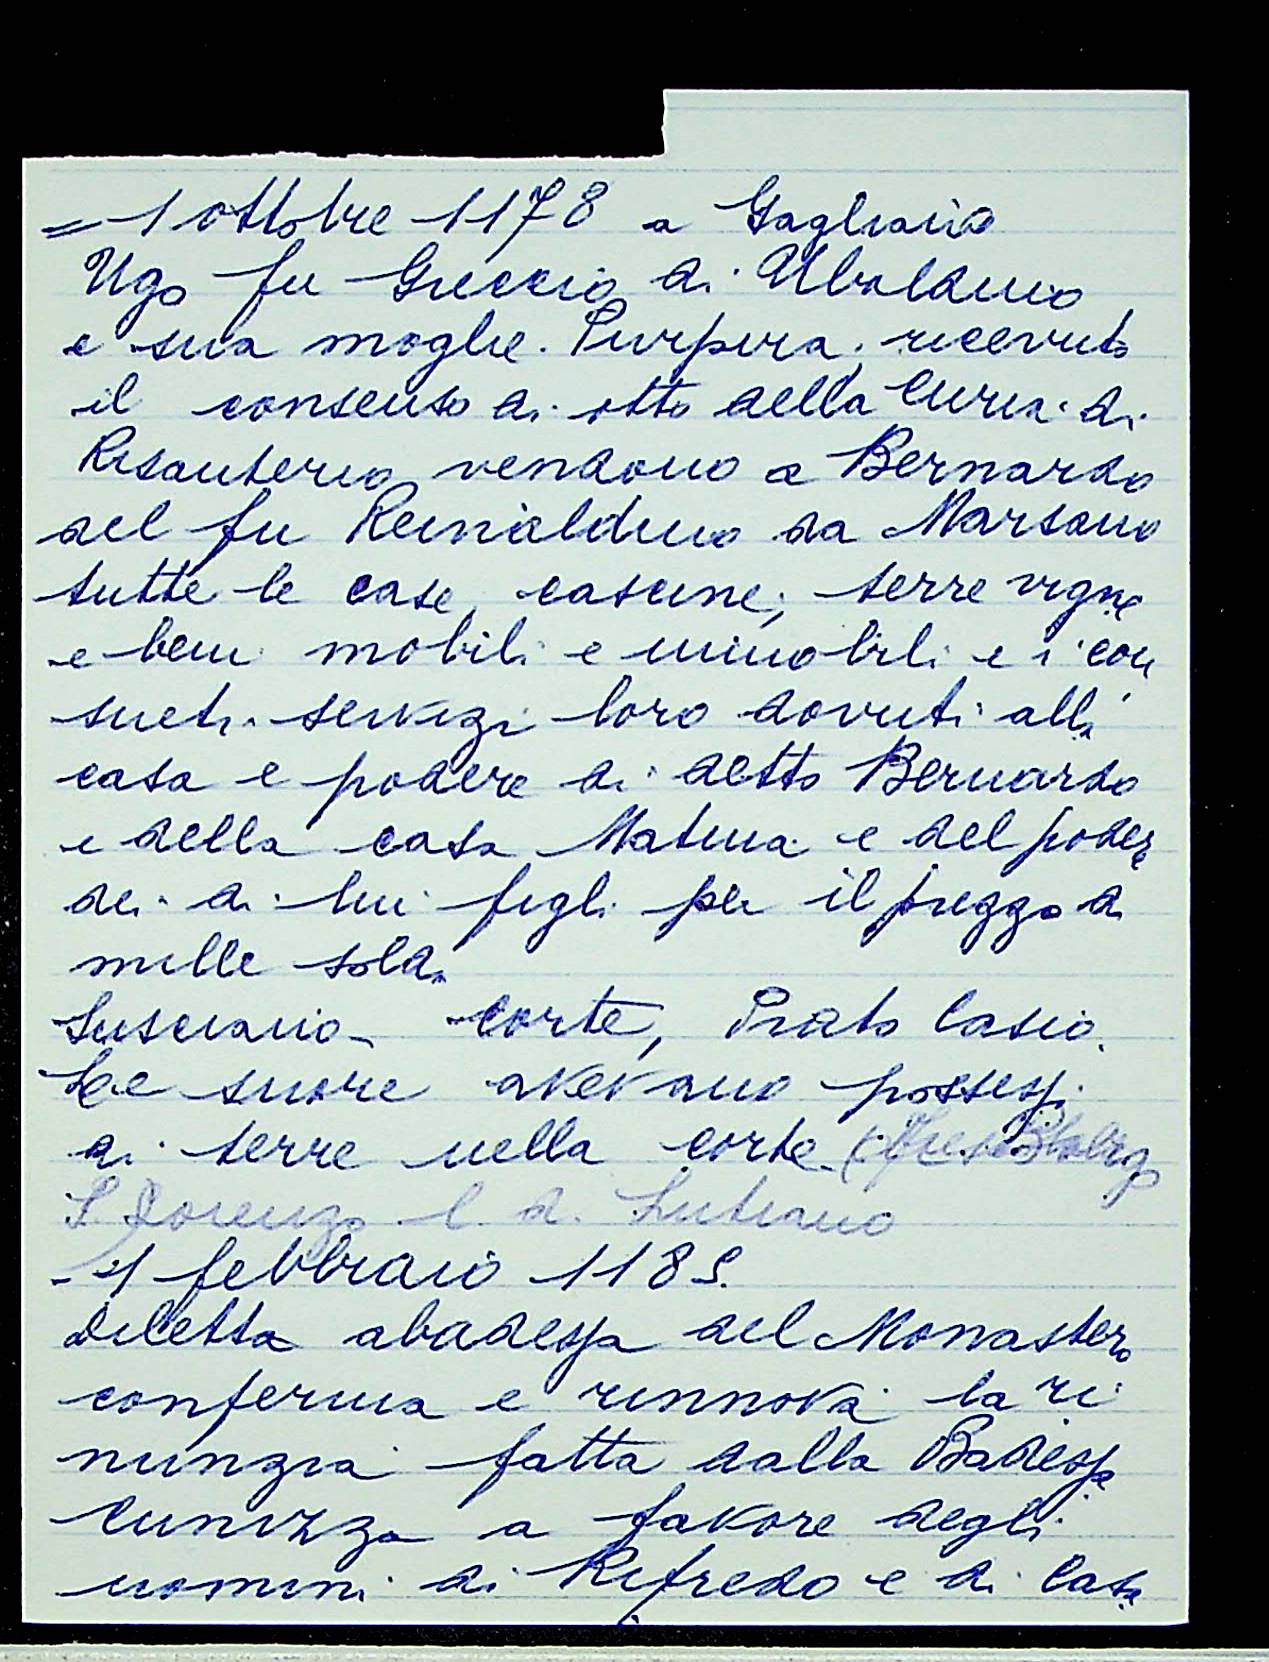 = 1 ottobre 1178 a Gagliano
Ugo fu Greccio di Ubaldino
e sua moglie Purpura, ricevuto
il consenso di otto della Curia di
vendono a Bernardo
del fu Reinaldino da Marsano
tutte le case, cascine, terre vigne
e beni mobili e immobili e i con
sueti servizi loro dovuti alla
casa e podere di detto Bernardo
e della casa Matura e del podere
dei di lui figli per il prezzo di
mille soldi
Lusciano - Corte, Prato Casio.
Le suore avevano possessi
di terre nella corte
S. Lorenzo l. d. Lutiano
- 1 febbraio 1185.
Diletta abadessa del Monastero
conferma e rinnova la ri
nunzia fatta dalla Badessa
Cunizza a favore degli
uomini di Rifredo e di Casa